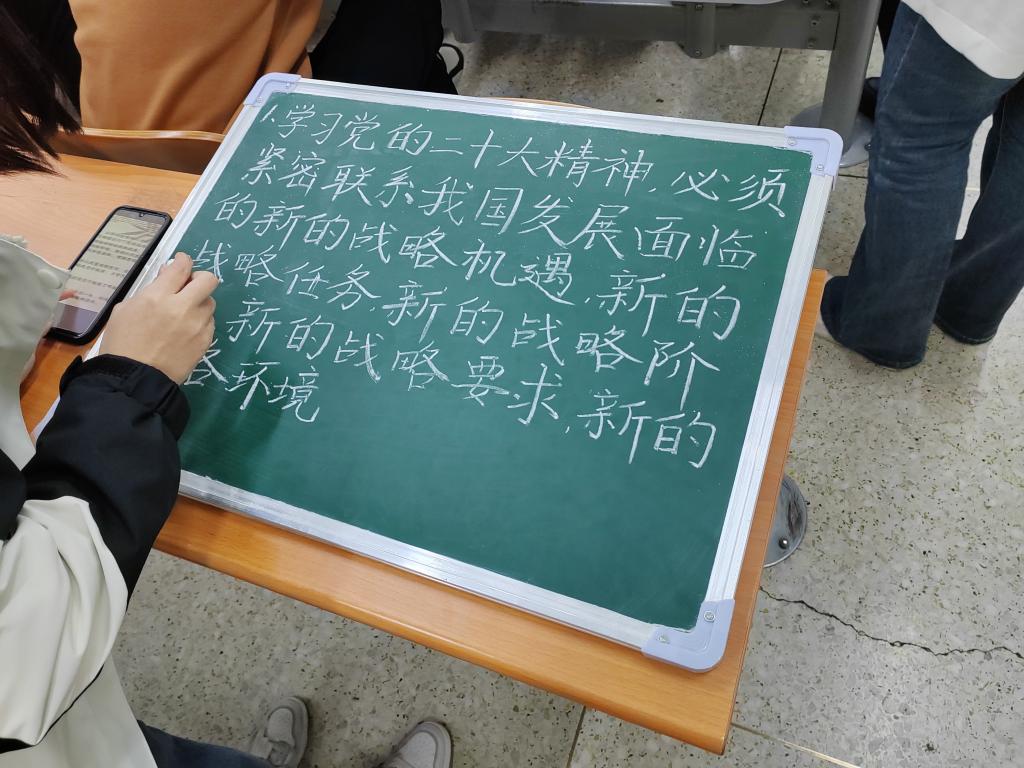 1.学习党的二十大精神,必须
紧密联系我国发展面临
的新的战略机遇,新的
战略任务,新的战略阶
新的战略要求,新的
环境